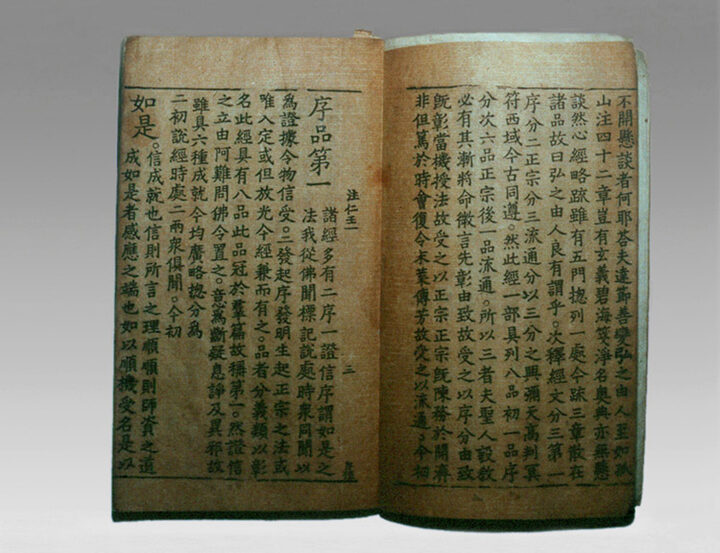 不開懸談者何耶荅夫達節善變弘之由人至如孤
山注四十二章豈有玄義碧海箋淨名奧典亦無懸
談然心經略疏雖有五門揔列一處今疏三章散在
諸品故曰弘之由人良有謂乎。次釋經文分三第一
序分二正宗分三流通分以三分之興彌天高判冥
符西域今古同遵。然此經一部具列八品初一品序
分次六品正宗後一品流通。所以三者夫聖人設教
必有其漸將命微言先彰由致故受之以序分由致
既彰當機授法故受之以正宗正宗既陳務於開濟
非但篤於時會復令末葉傳芳故受之以流通。今初
注仁王一 三
序品第一
諸經多有二序一證信序謂如是之
法我從佛聞標記說處時衆同聞以
爲證據令物信受。二發起序發明生起正宗之法或
唯入定或但放光今經兼而有之。品者分義類以彰
名此經具有八品此品冠於羣篇故稱第一。然證信
之立由阿難問佛令置之。意爲斷疑息諍及異邪故
雖具六種成就今均廣略揔分爲
二初說經時處二兩衆俱聞。今初
如是。信成就也信則所言之理順順則師資之道
成如是者感應之端也如以順機受名是以